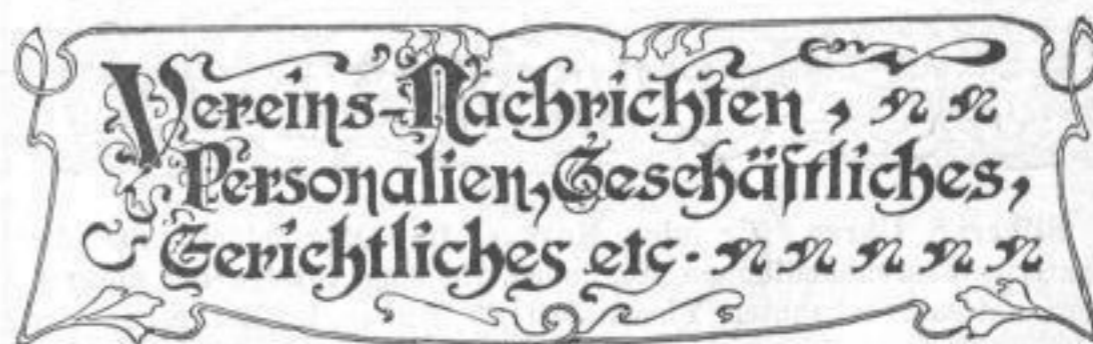 Vereins-Nachrichten,
Personalien, Geschäftliches,
Gerichtliches etc.